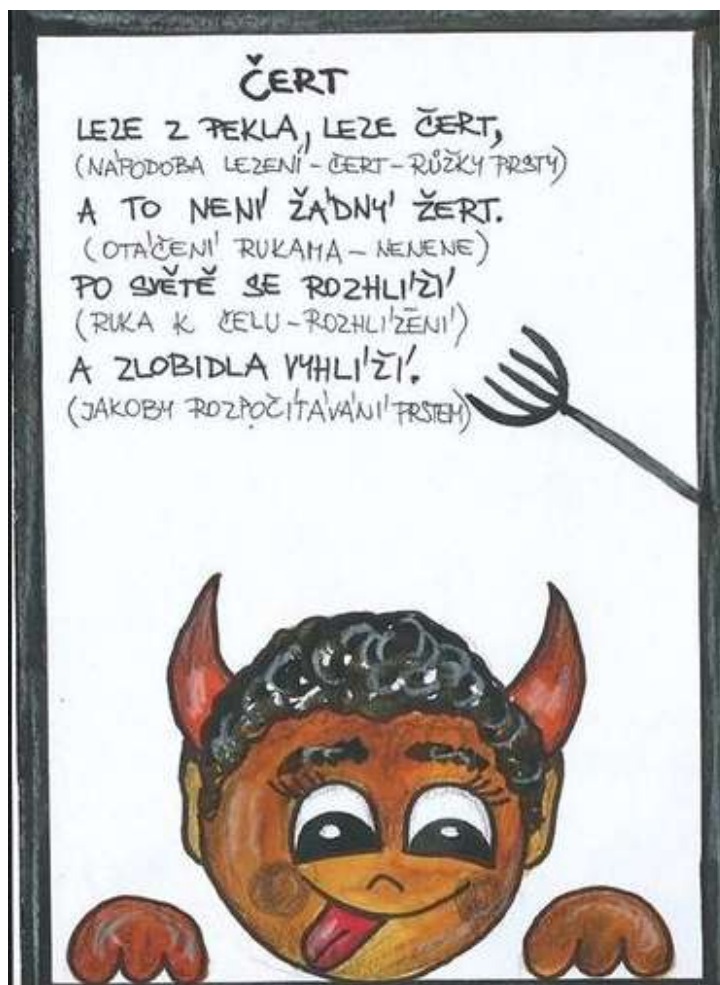 ČERT
LEZE Z PEKLA, LEZE ČERT,
(NÁPODOBA LEZENÍ - ČERT - RŮŽKY PRSTY)
A TO NENÍ ŽÁDNÝ ŽERT.
(OTÁČENÍ RUKAMA - NENENE)
PO SVĚTĚ SE ROZHLÍŽÍ
(RUKA K ČELU - ROZHLÍŽENÍ)
A ZLOBIDLA VYHLÍŽÍ.
(JAKOBY ROZPOČÍTÁVÁNÍ PRSTEM)